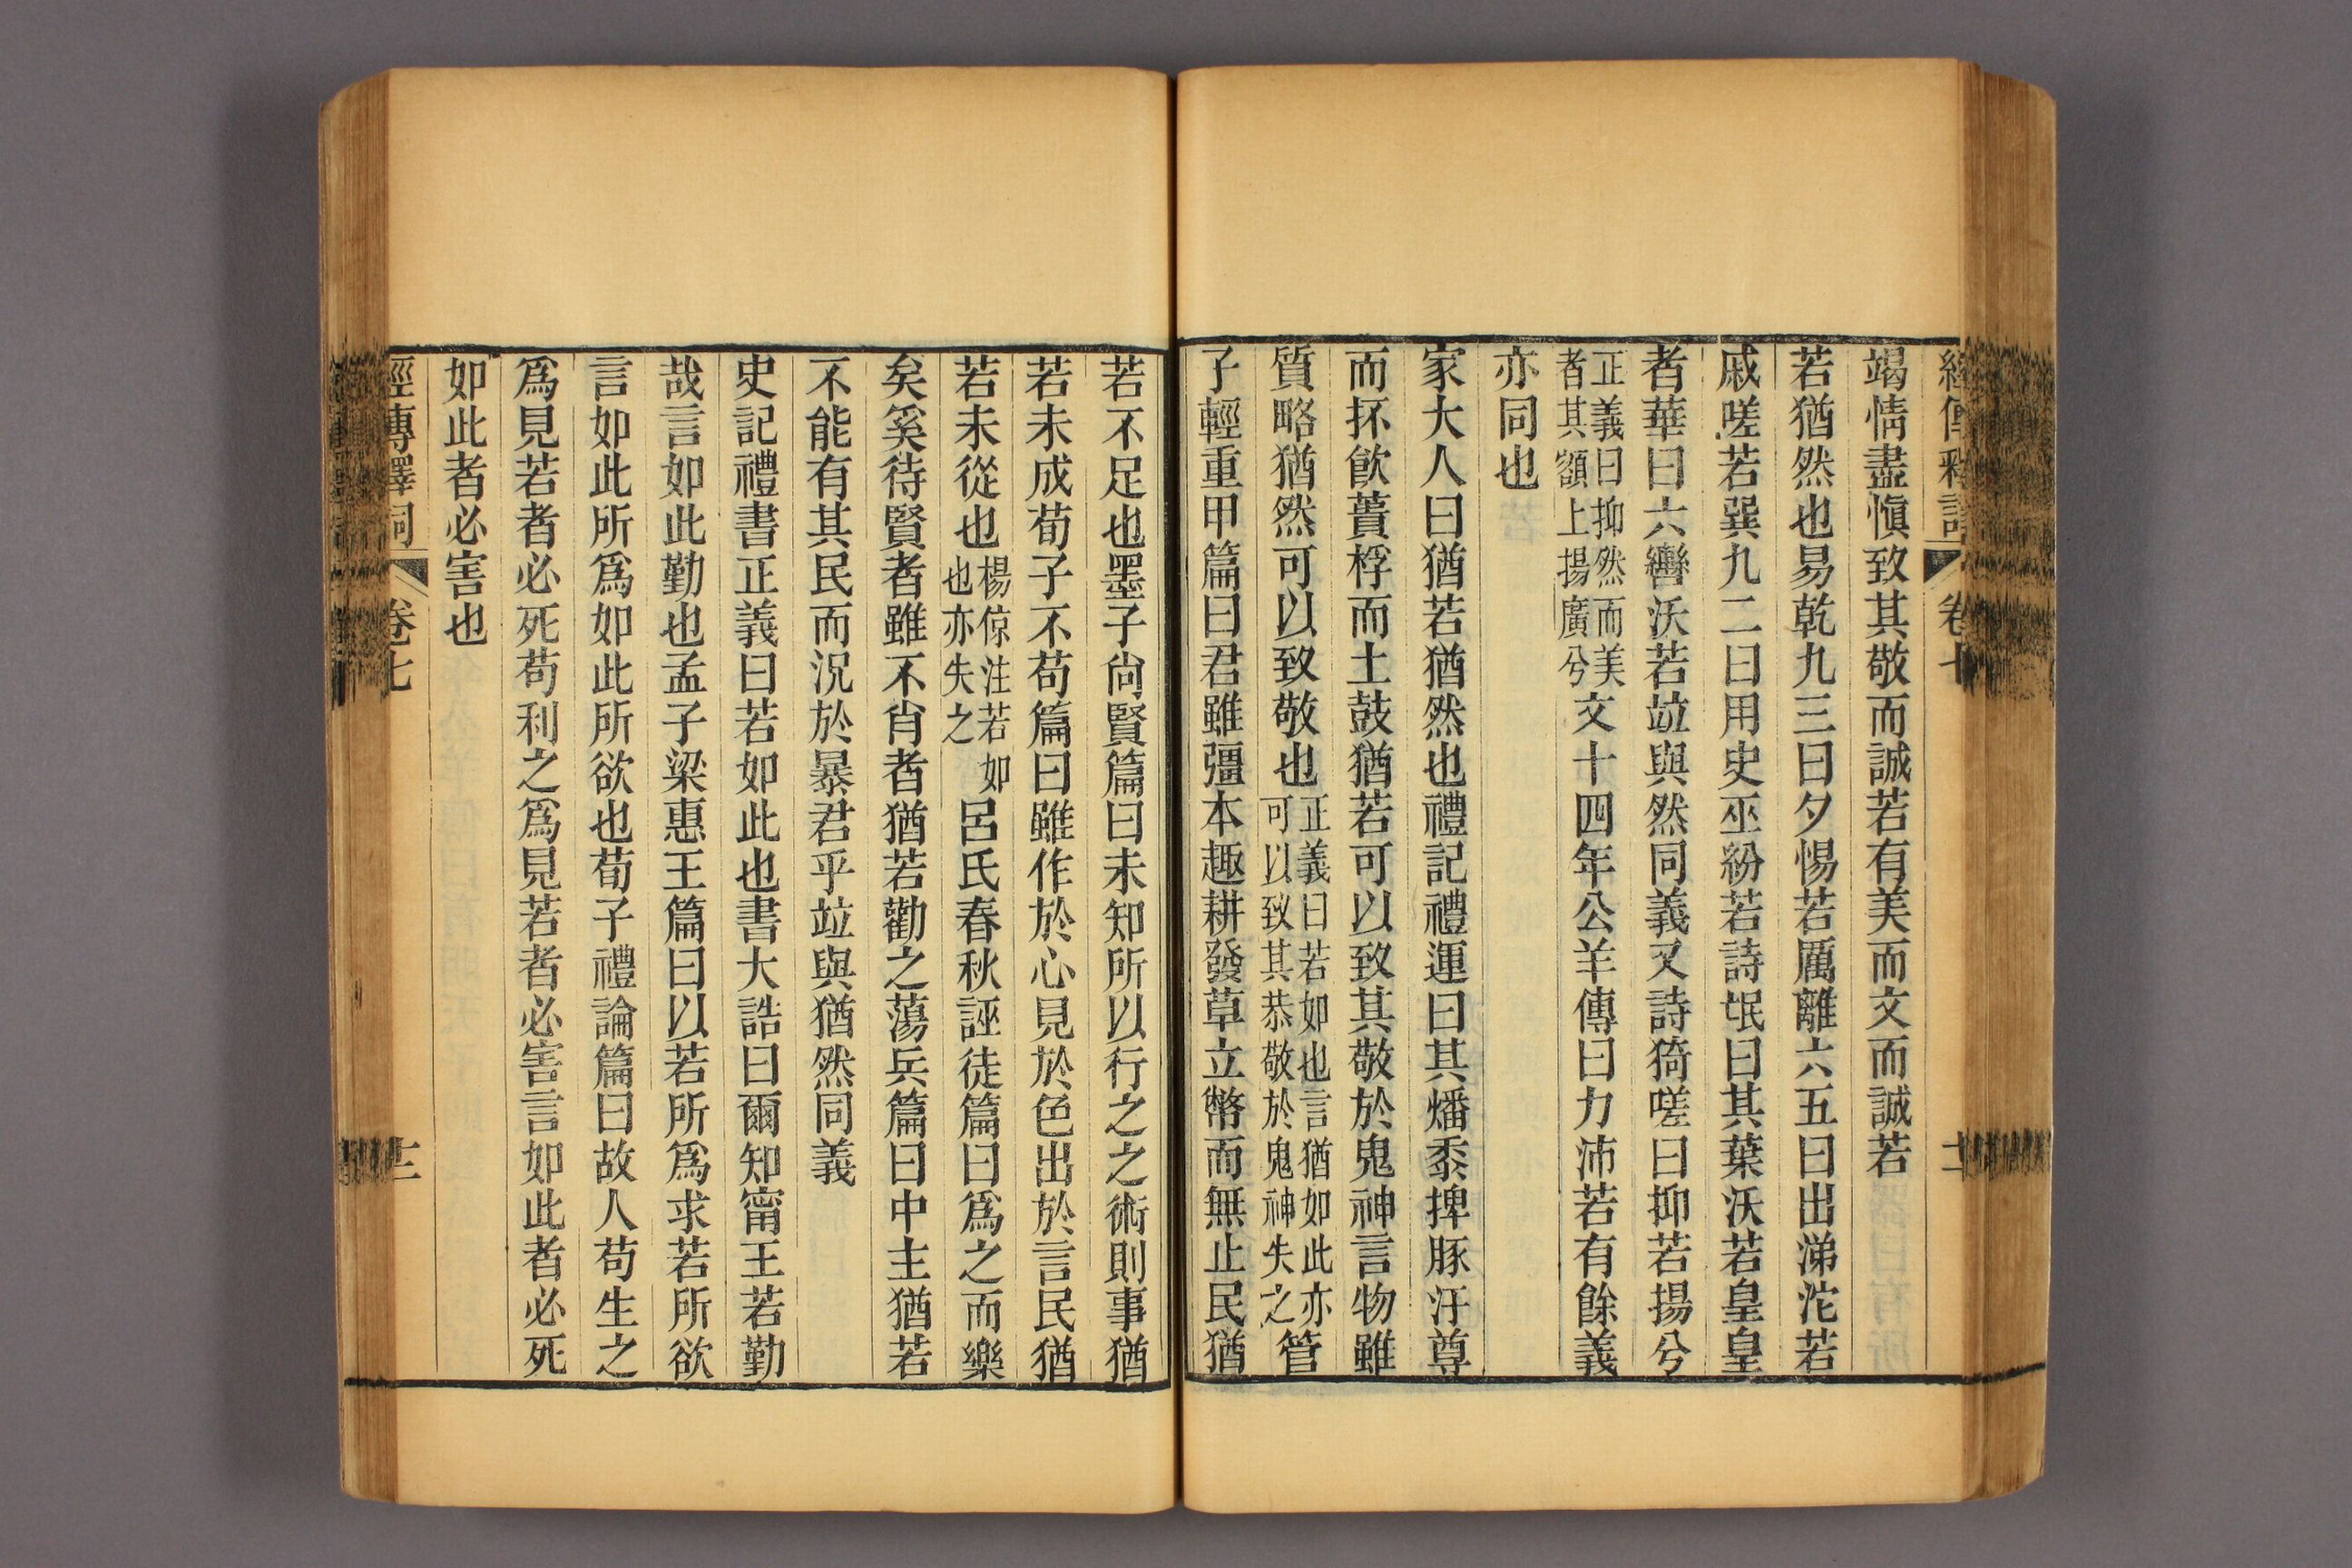 經傳釋詞 卷七 十二
竭情盡愼致其敬而誠若有美而文而誠若
若猶然也易乾九三曰夕惕若厲離六五曰出涕沱若
戚嗟若巽九二曰用史巫紛若詩氓曰其葉沃若皇皇
者華曰六轡沃若竝與然同義又詩猗嗟曰抑若揚兮
正義曰抑然而美
者其額上揚廣兮
文十四年公羊傳曰力沛若有餘義
亦同也
家大人曰猶若猶然也禮記禮運曰其燔黍捭豚汙尊
而抔飮蕢桴而土鼓猶若可以致其敬於鬼神言物雖
質略猶然可以致敬也
正義曰若如也言猶如此亦
可以致其恭敬於鬼神失之
管
子輕重甲篇曰君雖彊本趣耕發草立幣而無止民猶
若不足也墨子尙賢篇曰未知所以行之之術則事猶
若未成荀子不苟篇曰雖作於心見於色出於言民猶
若未從也
楊倞注若如
也亦失之
呂氏春秋誣徒篇曰爲之而樂
矣奚待賢者雖不肖者猶若勸之蕩兵篇曰中主猶若
不能有其民而況於暴君乎竝與猶然同義
史記禮書正義曰若如此也書大誥曰爾知甯王若勤
哉言如此勤也孟子梁惠王篇曰以若所爲求若所欲
言如此所爲如此所欲也荀子禮論篇曰故人苟生之
爲見若者必死苟利之爲見若者必害言如此者必死
如此者必害也
經傳釋詞 卷七